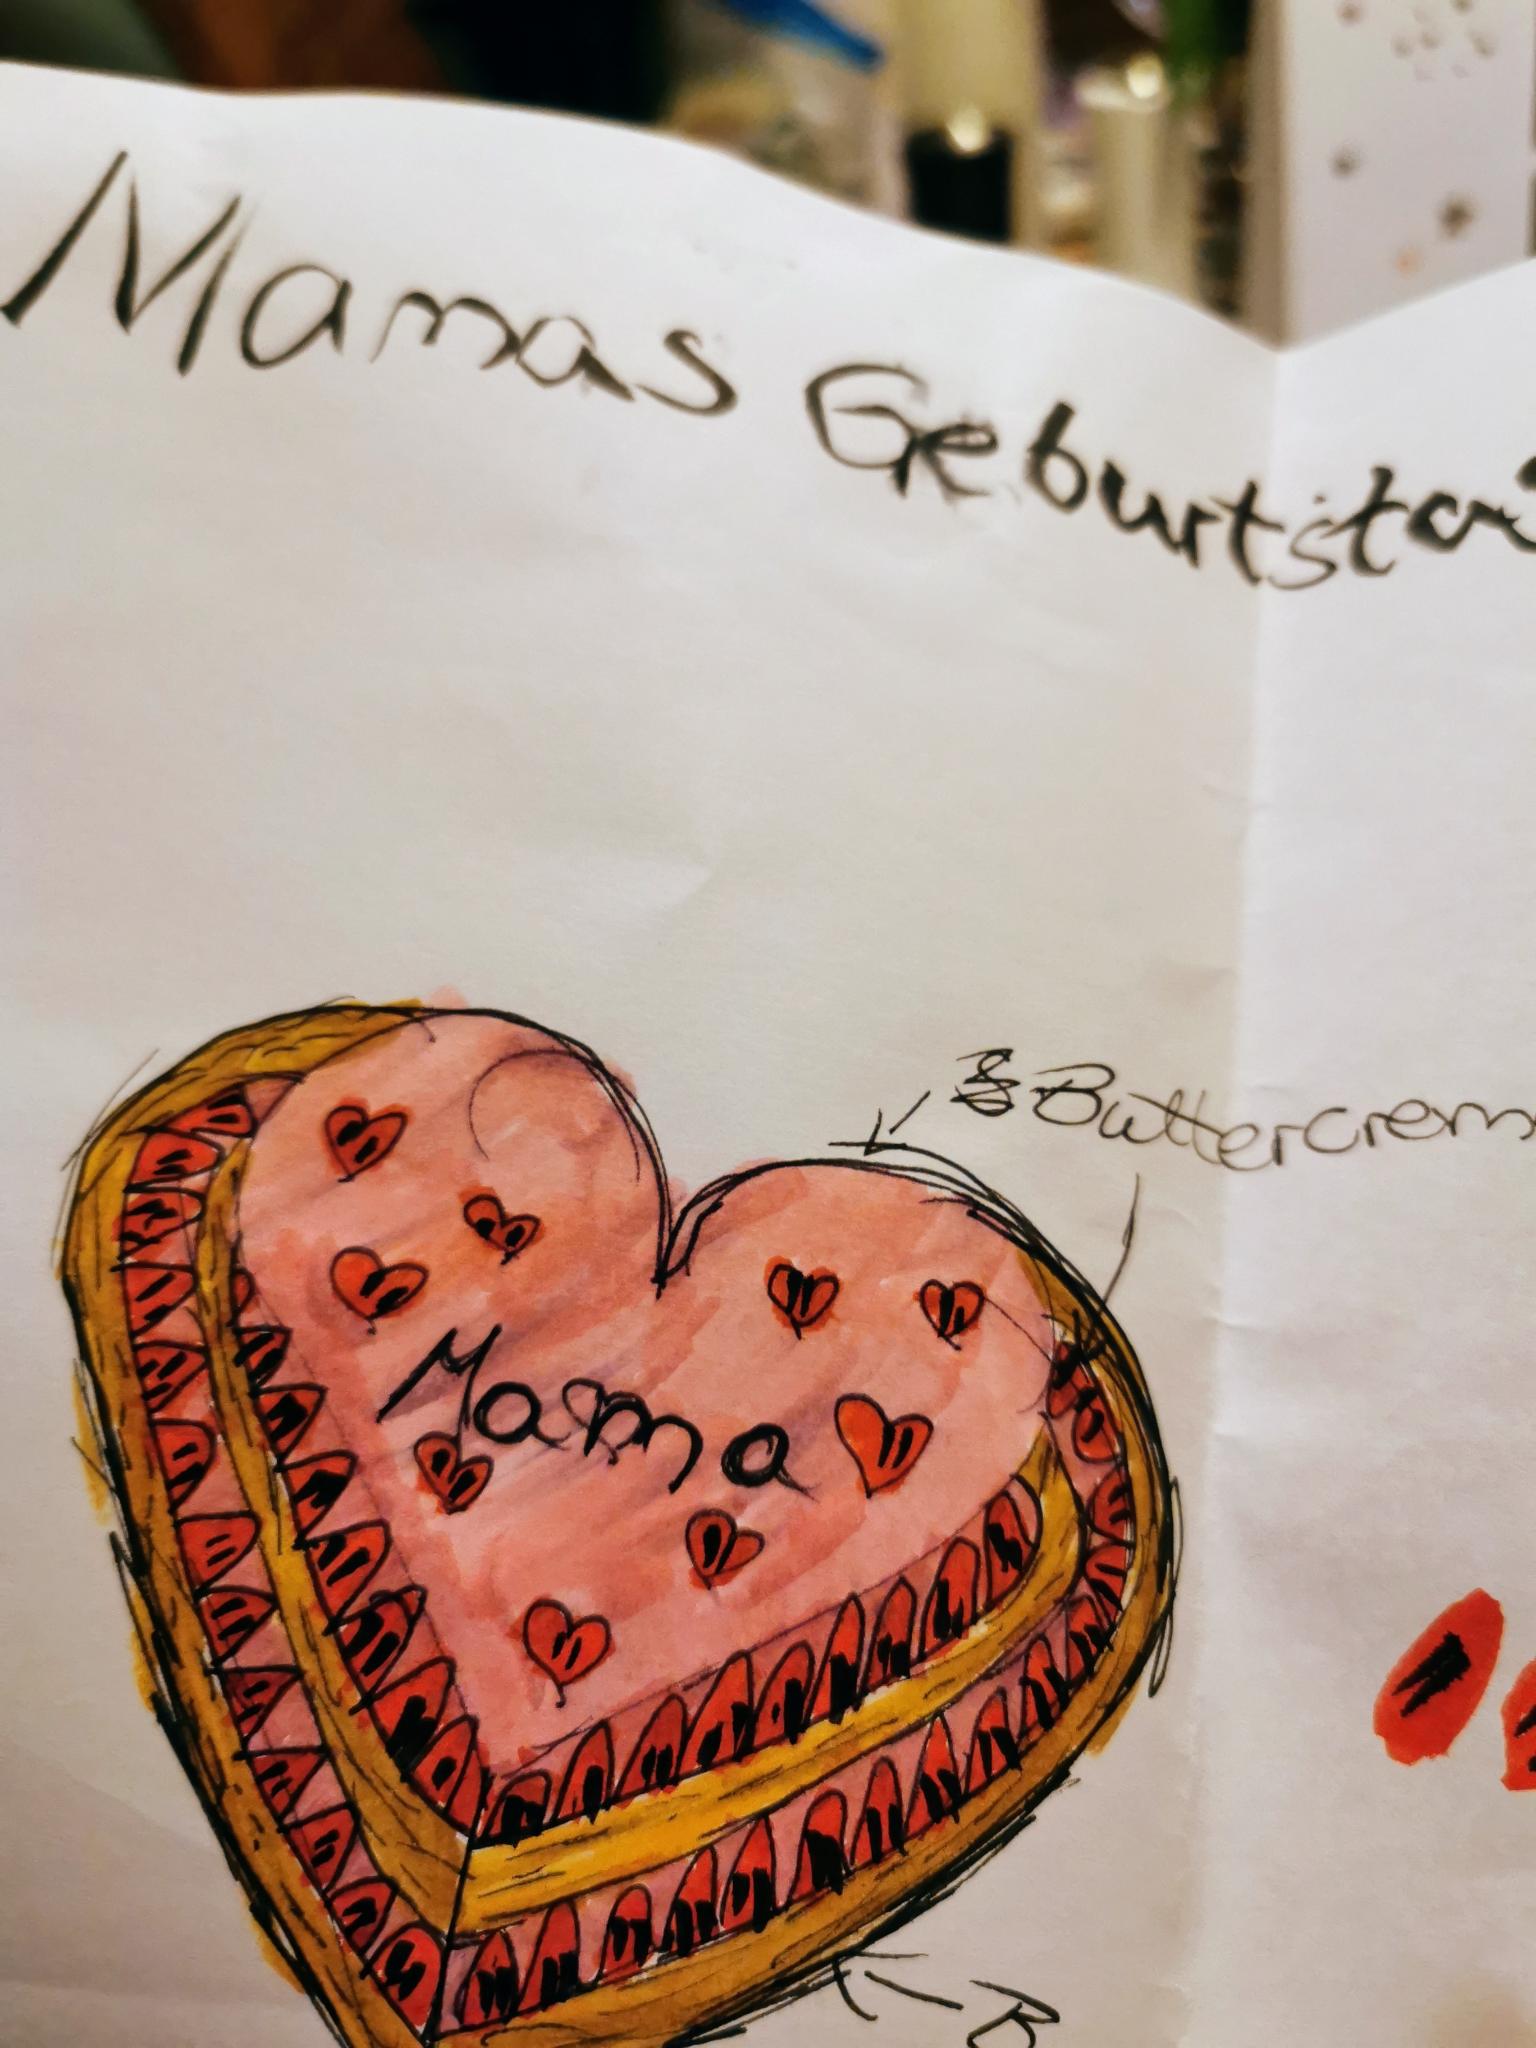 Mamas Geburtsta
Buttercrem
Mama
B